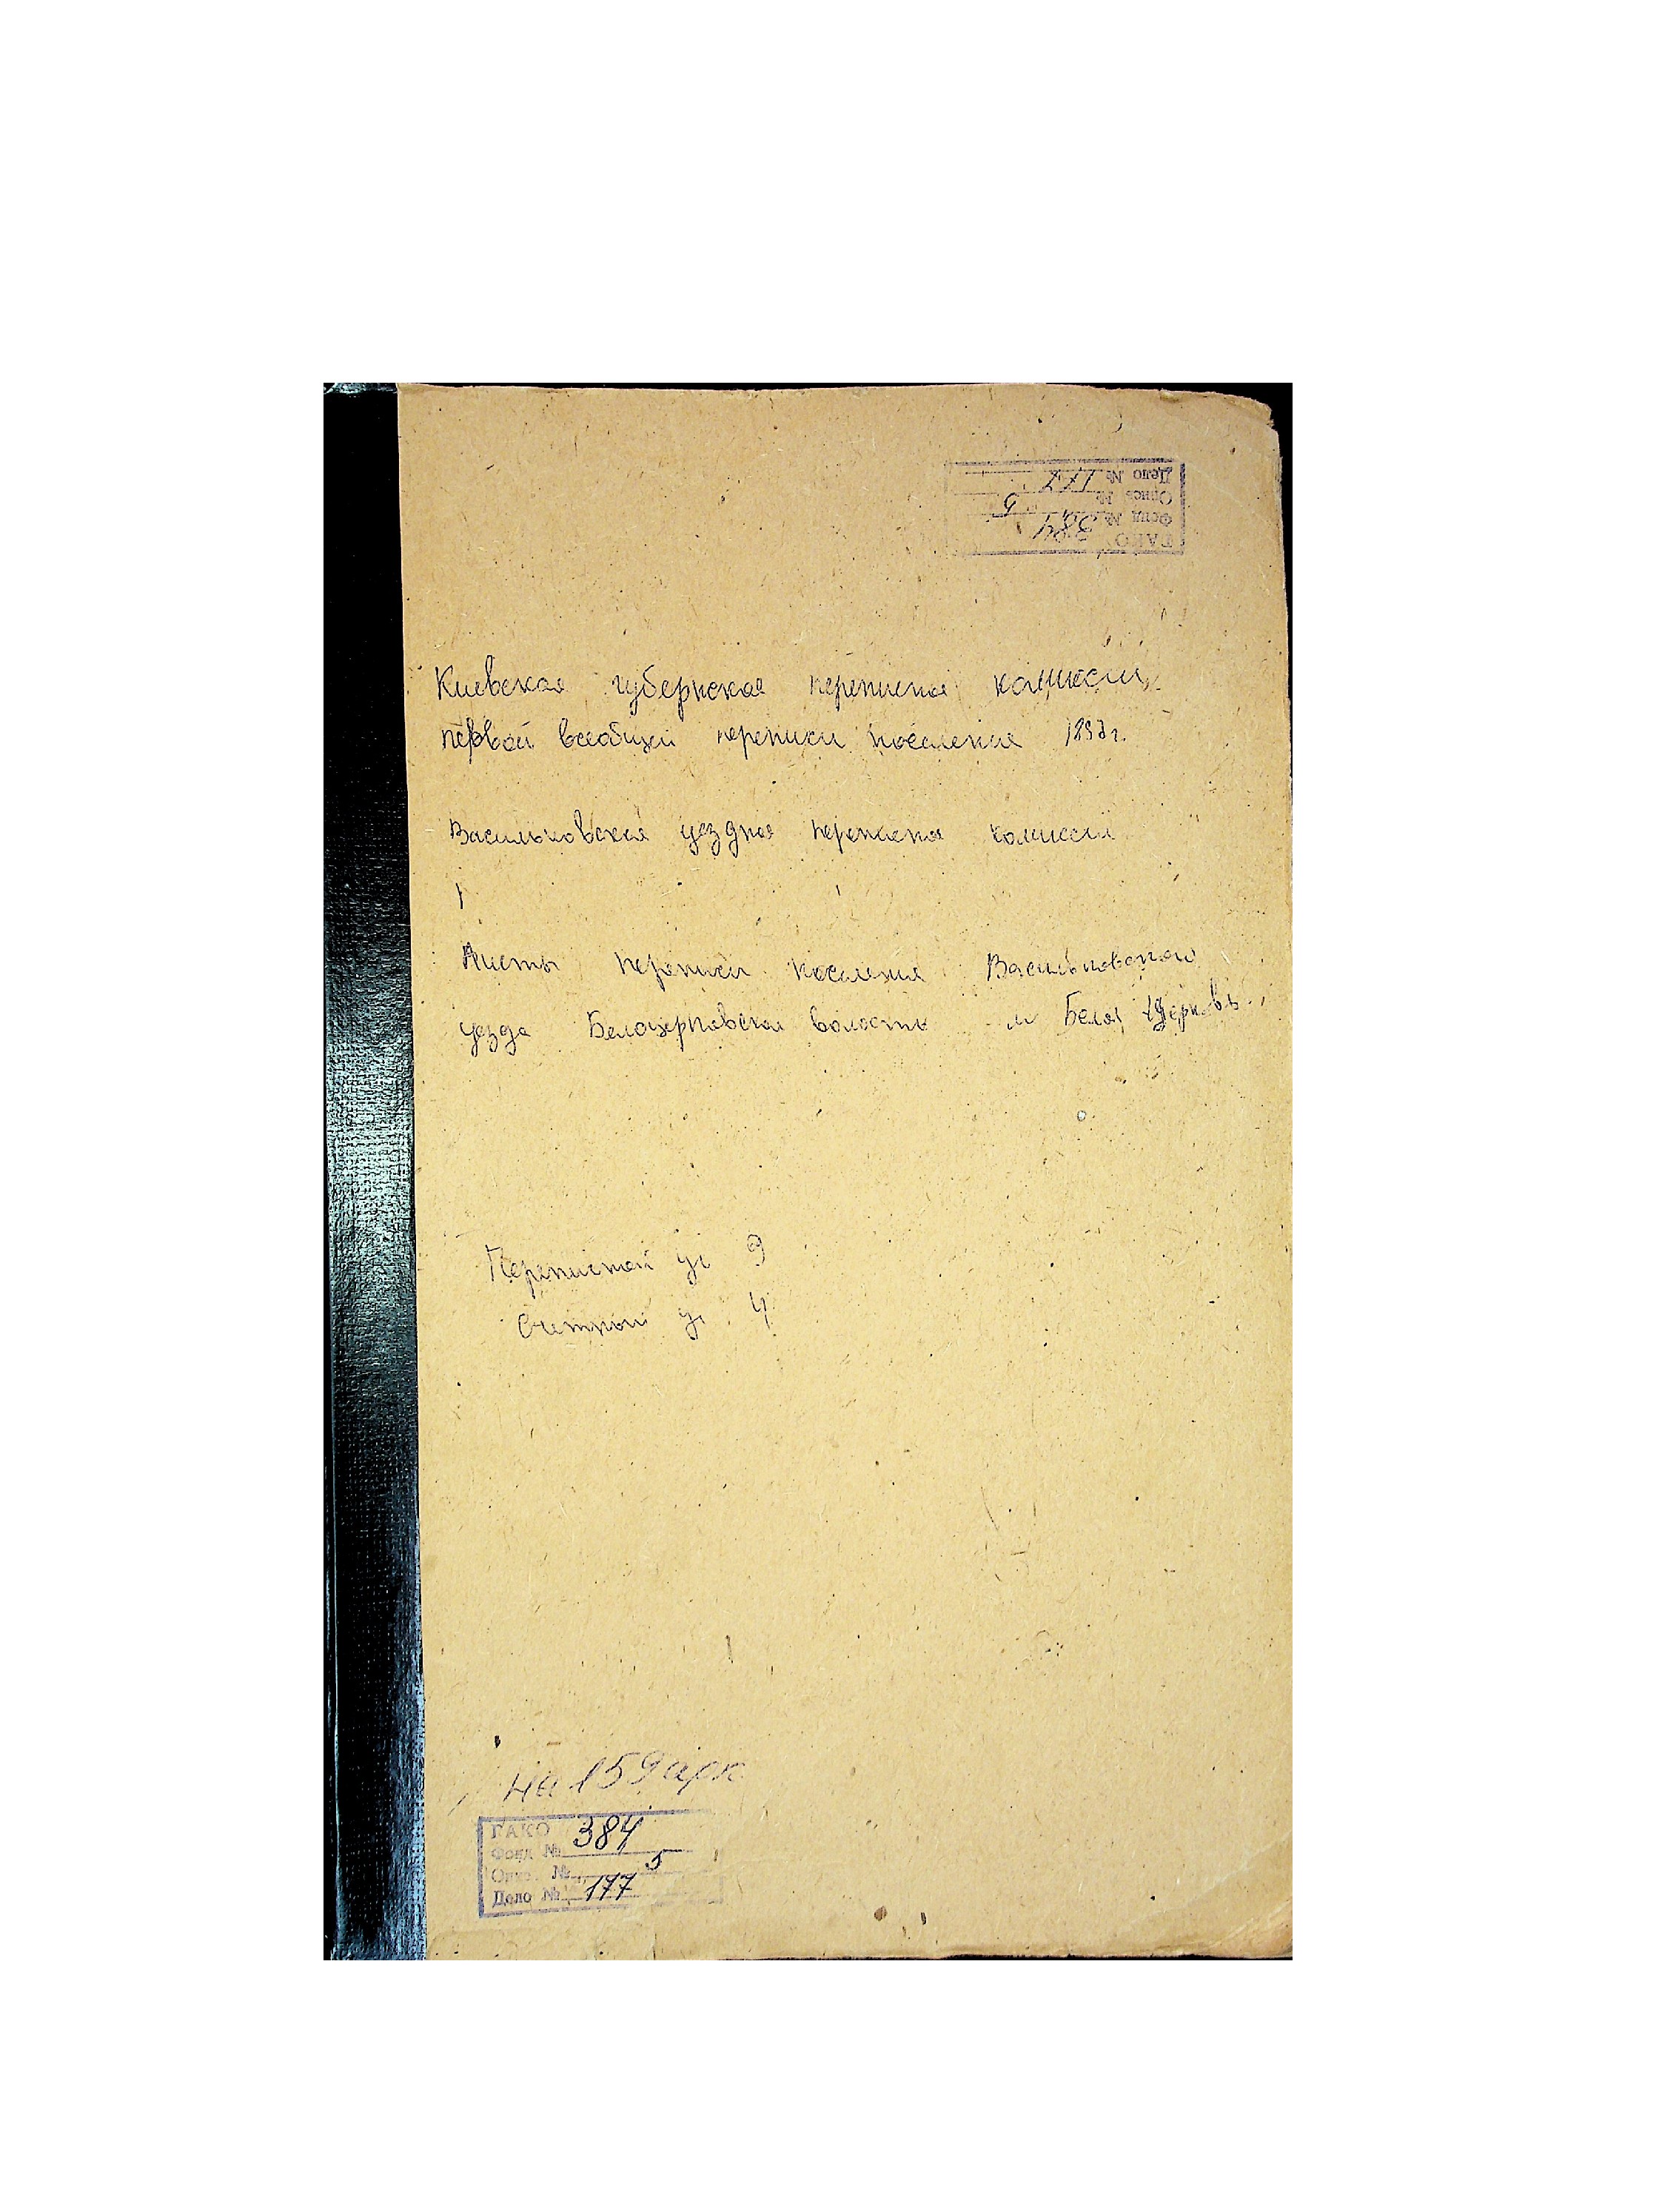 ГАКО
Фонд № 384
Опись № 5
Дело № 177
Киевская губернская переписная комиссия
первой всеобщей переписи населения 1897г.
Васильковская уездная переписная комиссия
Листы переписи населения Васильковского
уезда Белоцерковская волость м Белая Церковь
Переписной уч 9
Счетный уч 4
на 159 арк
ГАКО
Фонд № 384
Опис № 5
Дело № 177